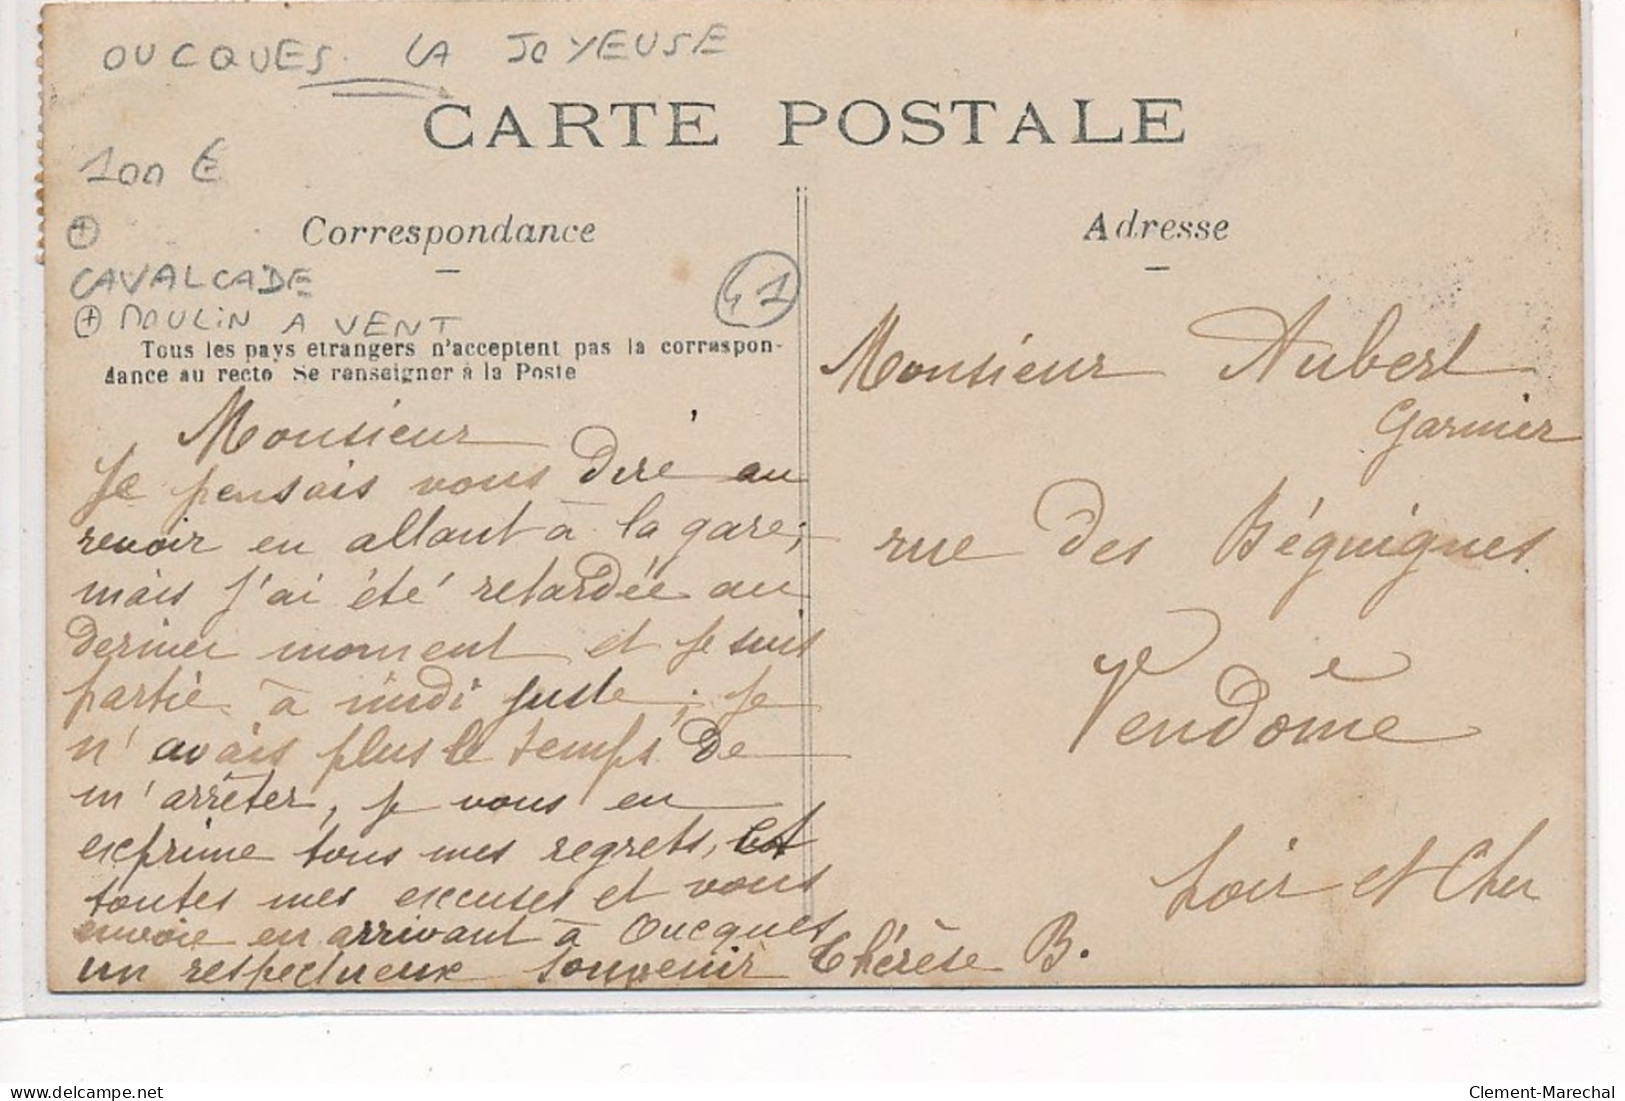 OUCQUES LA JOYEUSE
CARTE POSTALE
100 €
Correspondance
Adresse
+
CAVALCADE
41
+ MOULIN A VENT
Tous les pays etrangers n'acceptent pas la correspon-
dance au recto Se renseigner à la Poste
Monsieur
Je pensais vous dire au
revoir en allant à la gare,
mais j'ai été retardée au
dernier moment et je suis
partie à midi juste; je
n'avais plus le temps de
m'arrêter, je vous en
exprime tous mes regrets, et
toutes mes excuses et vous
envoie en arrivant à Oucques
un respectueux souvenir Thérèse B.
Monsieur Aubert
Garnier
rue des Béguignes
Vendôme
Loir et Cher
delcampe.net
Clement-Marechal